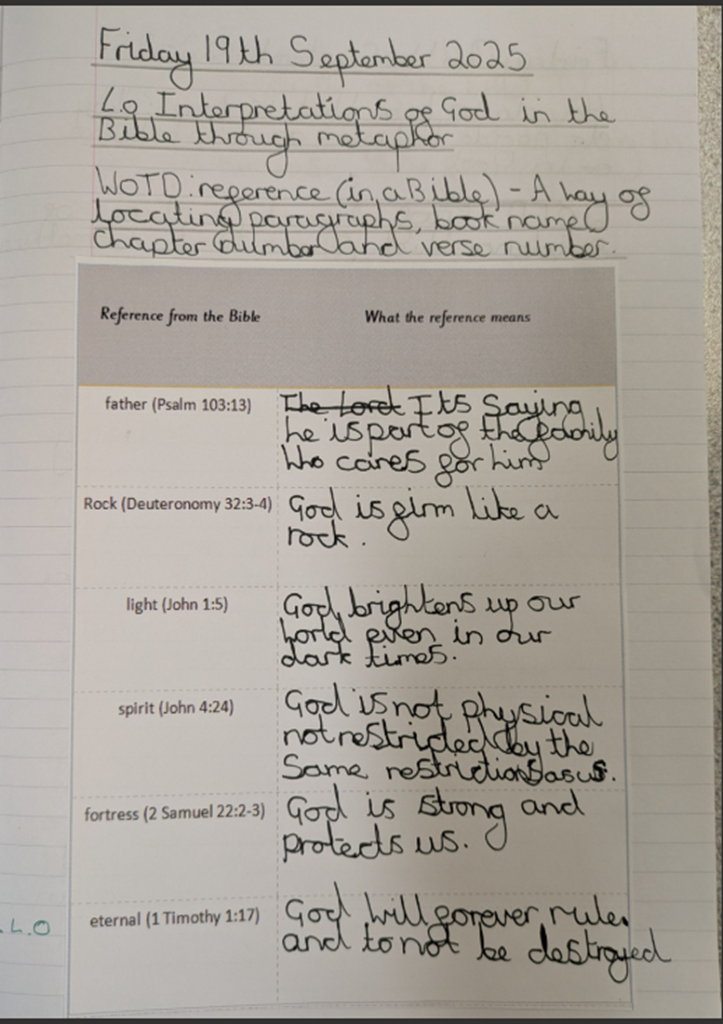 Friday 19th September 2025
L.O Interpretations of God in the
Bible through metaphor
WOTD: reference (in a Bible) - A way of
locating paragraphs, book name
chapter number and verse number.
Reference from the Bible What the reference means
father (Psalm 103:13) The Lord Its Saying
he is part of the family
who cares for him
Rock (Deuteronomy 32:3-4) God is firm like a
rock.
light (John 1:5) God brightens up our
world even in our
dark times.
spirit (John 4:24) God is not physical
not restricted by the
Same restrictions as us.
fortress (2 Samuel 22:2-3) God is strong and
protects us.
eternal (1 Timothy 1:17) God will forever rule
and to not be destroyed
L.O